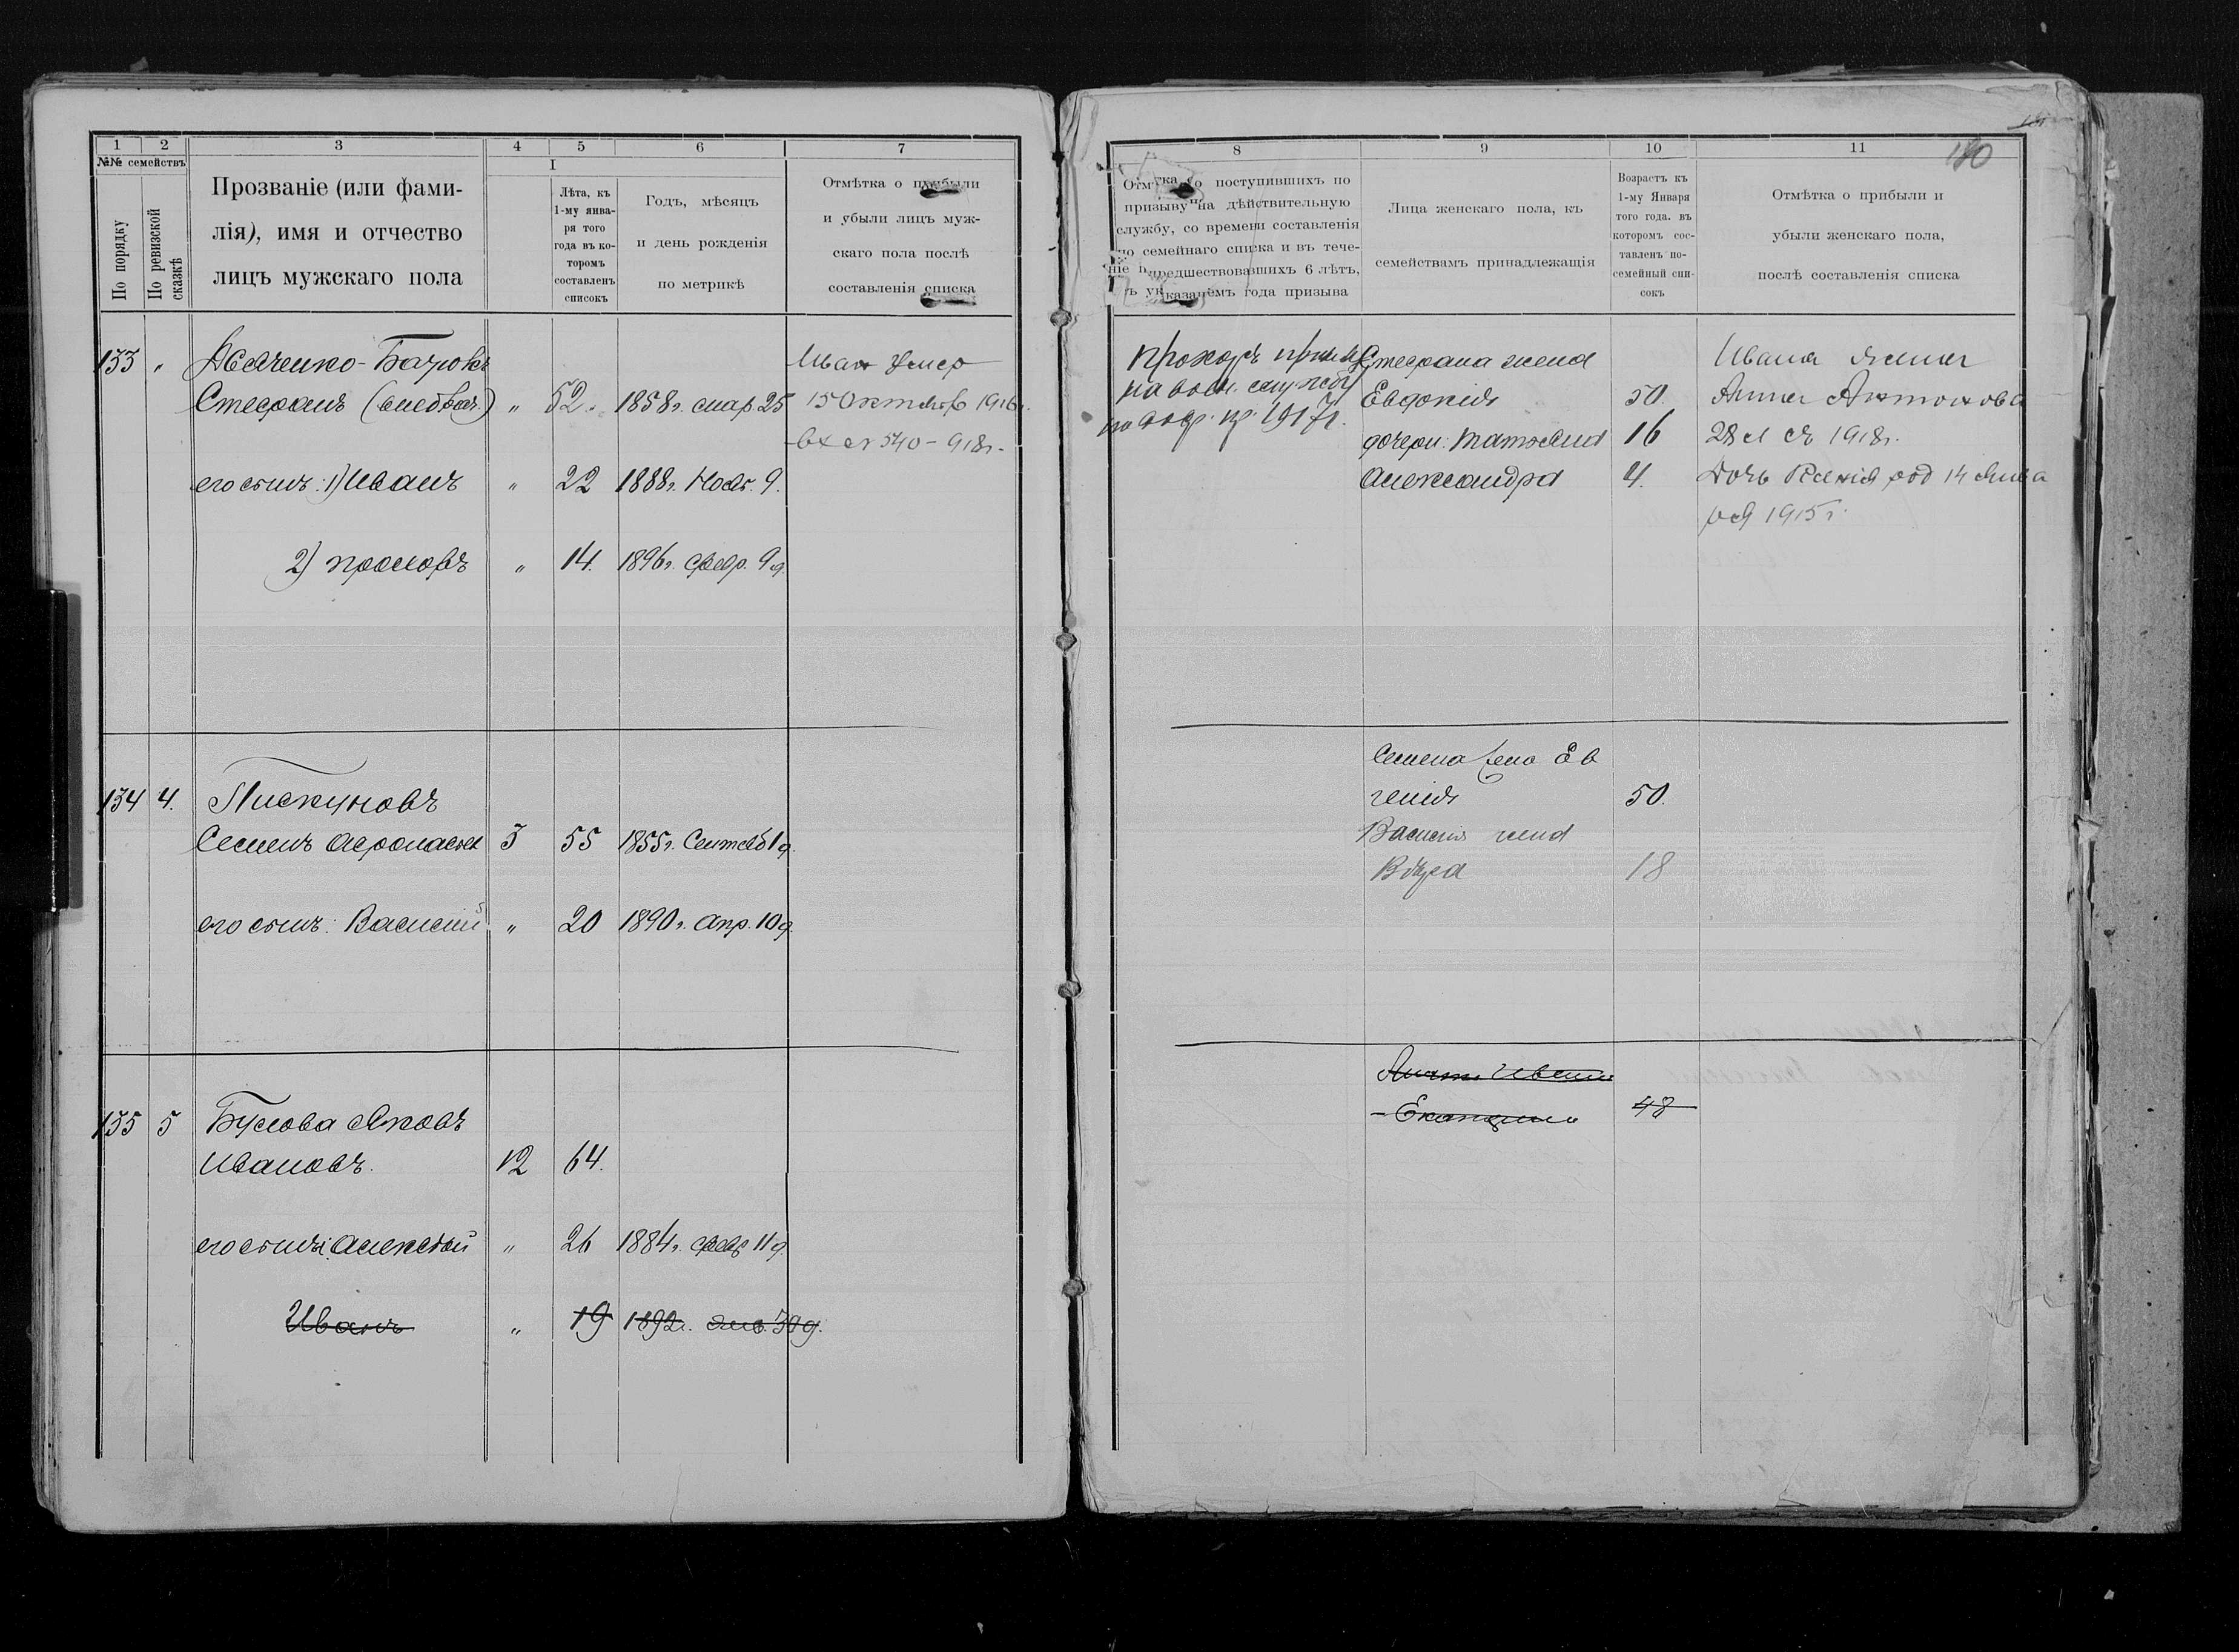 1
2
3
4
5
6
7
№№ семействъ
По порядку
По ревизской сказкѣ
Прозваніе (или фами-
лія), имя и отчество
лицъ мужскаго пола
I
Лѣта, къ
1-му янва-
ря того
года въ ко-
торомъ
составленъ
списокъ
Годъ, мѣсяцъ
и день рожденія
по метрикѣ
Отмѣтка о прибыли
и убыли лицъ муж-
скаго пола послѣ
составленія списка
133 "
Стефанъ " 52. 1858г. мар. 25 15 Октября 1916г.
540 - 918г.
его сынъ: 1) Иванъ " 22 1888г. Нояб. 9.
2) Прохоръ " 14. 1896г. февр. 9 д.
134 4. Пискуновъ
Семенъ Афонасьев 3 55 1855г. Сентяб 1 д.
его сынъ: Василий " 20 1890г. Апр. 10 д.
135 5 Яковъ
Ивановъ. 12 64.
его сынъ: Алексѣй " 26 1884г. февр 11 д.
Иванъ " 19 1892г. янв. 30 д.
8
9
10
11
180
Отмѣтка о поступившихъ по
призыву на дѣйствительную
службу, со времени составленія
по семейнаго списка и въ тече-
ніе предшествовавшихъ 6 лѣтъ,
съ указаніемъ года призыва
Лица женскаго пола, къ
семействамъ принадлежащія
Возрастъ къ
1-му Января
того года. въ
которомъ сос-
тавленъ по-
семейный спи-
сокъ
Отмѣтка о прибыли и
убыли женскаго пола,
послѣ составленія списка
Прохоръ принятъ
на воен. службу
1917г.
Стефана жена
Евдокія 50.
дочери: Татьяна 16
Александра 4.
Ивана жена
Анна Антонова
28 л съ 1918г.
Дочь Ксенія род 14 Янва
ря 1915г.
Семена жена Ев
генія 50.
Василия жена
18
Екатерина 48